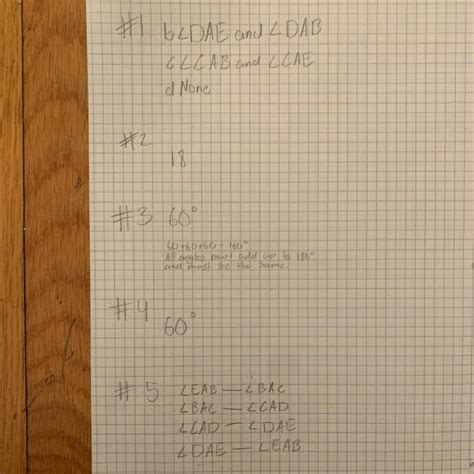 #1 b∠DAE and ∠DAB
c∠CAB and ∠CAE
d None
#2
18
#3 60°
60+60+60 = 180°
All angles must add up to 180°
and must be the same.
#4
60°
#5 ∠EAB — ∠BAC
∠BAC — ∠CAD
∠CAD — ∠DAE
∠DAE — ∠EAB